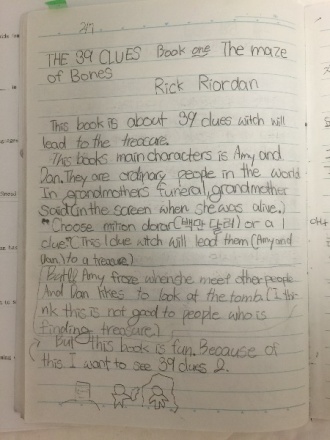 THE 39 CLUES Book one The maze
of Bones
Rick Riordan
This book is about 39 clues witch will
lead to the treasure.
This books main characters is Amy and
Dan. They are ordinary people in the world
In grandmothers funeral, grandmother
said (in the screen when she was alive.)
"Choose million dorar (백만 달러) or a 1
clue? (This 1 clue witch will lead them (Amy and
Dan) to a treasure)
Amy froze when she meet other people
And Dan likes to look at the tomb. (I thi-
nk this is not good to people who is
finding treasure.)
But this book is fun. Because of
this I want to see 39 clues 2.